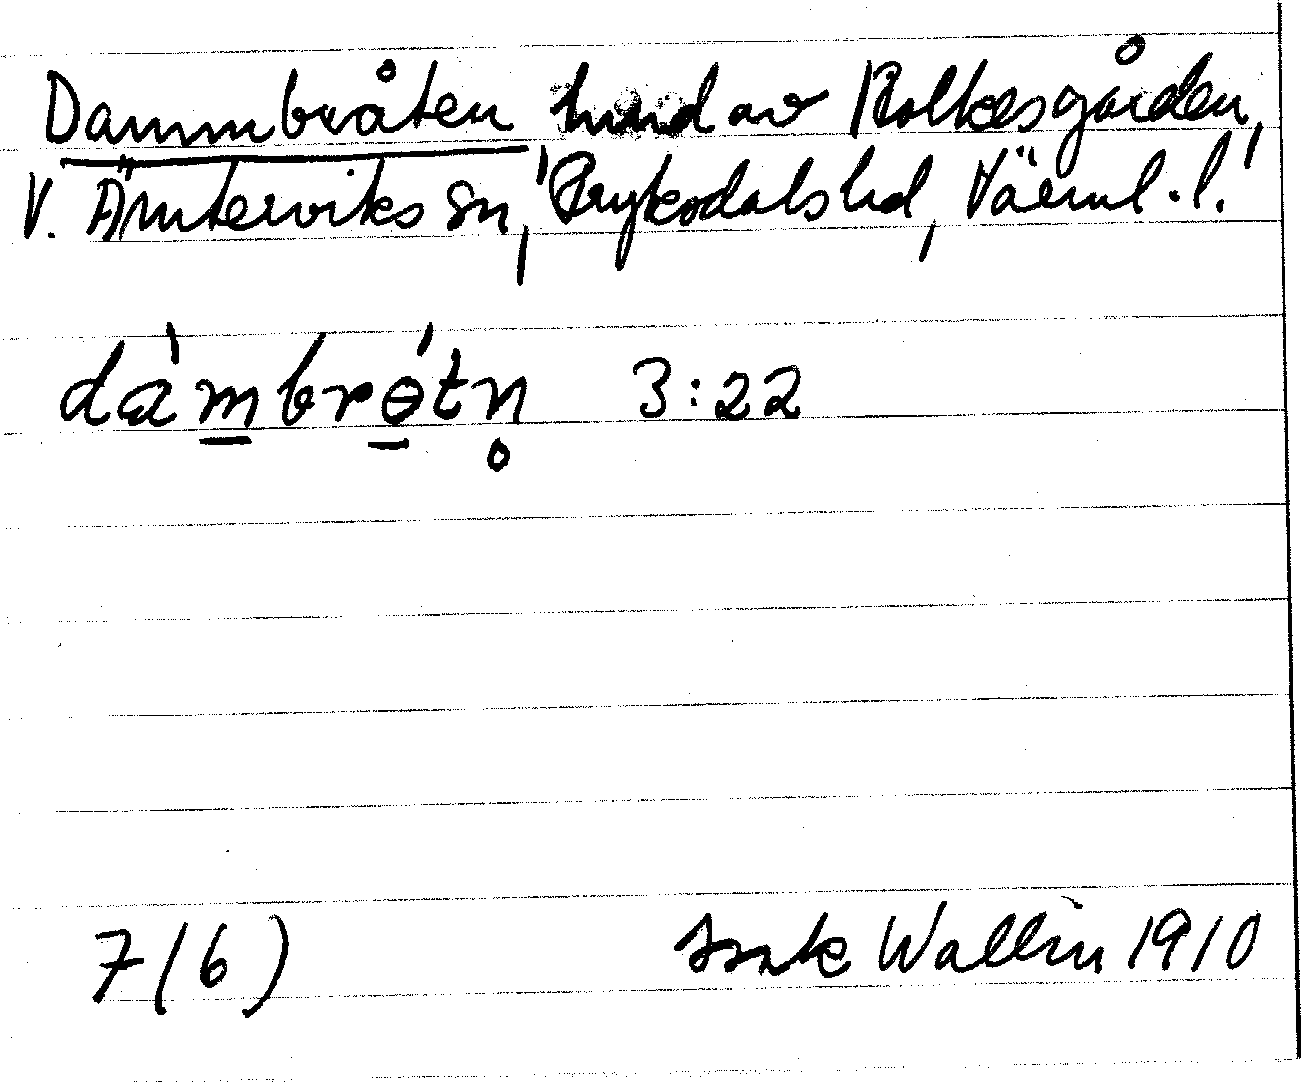 Dammbråten hmd av Rolkesgården,
V. Ämterviks sn, Fryksdals hd, Värml. l.
dàmbrǿtn̥ 3:22
7(6) Isak Wallin 1910